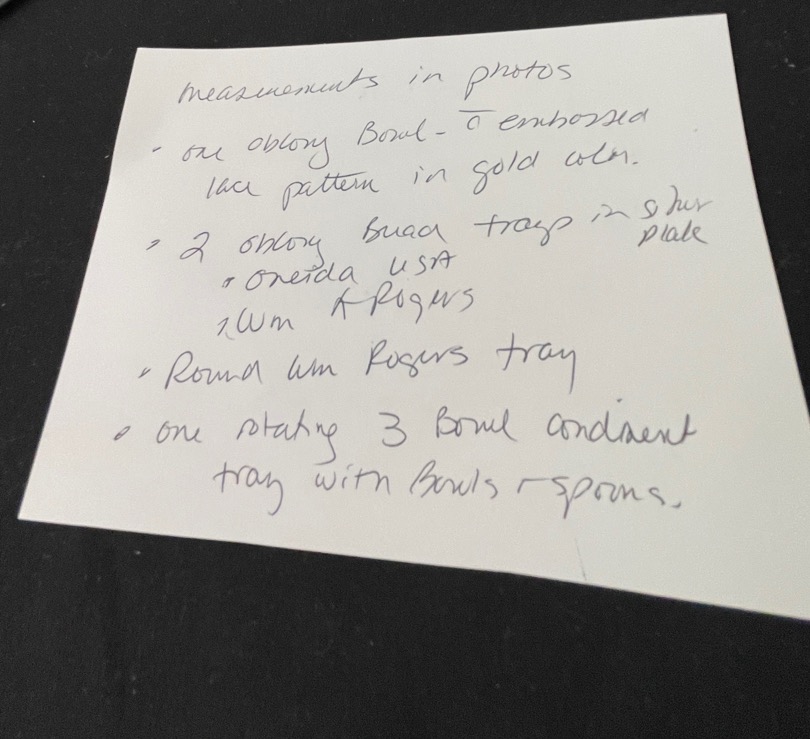 measurements in photos
- one oblong Bowl - c̄ embossed
lace pattern in gold color.
- 2 oblong Bread trays in silver
plate
• oneida USA
• Wm A Rogers
- Round Wm Rogers tray
• one rotating 3 Bowl condiment
tray with Bowls + spoons.